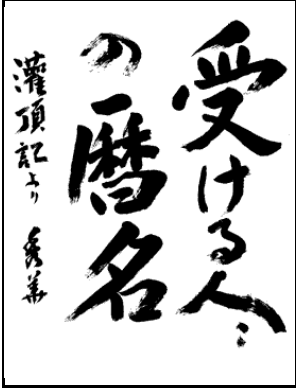 受ける人〻
の暦名
灌頂記より